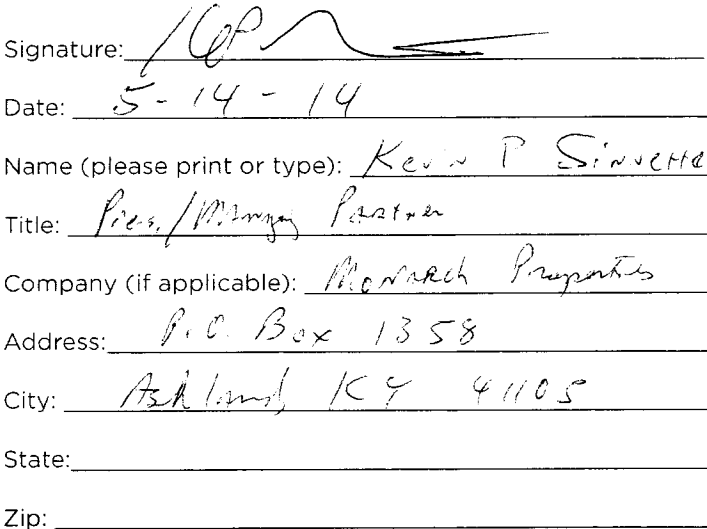 Signature:
Date: 5-14-14
Name (please print or type): Kevin P Sinnette
Title: Pres./Managing Partner
Company (if applicable): Monarch Properties
Address: P.O. Box 1358
City: Ashland KY 41105
State:
Zip: